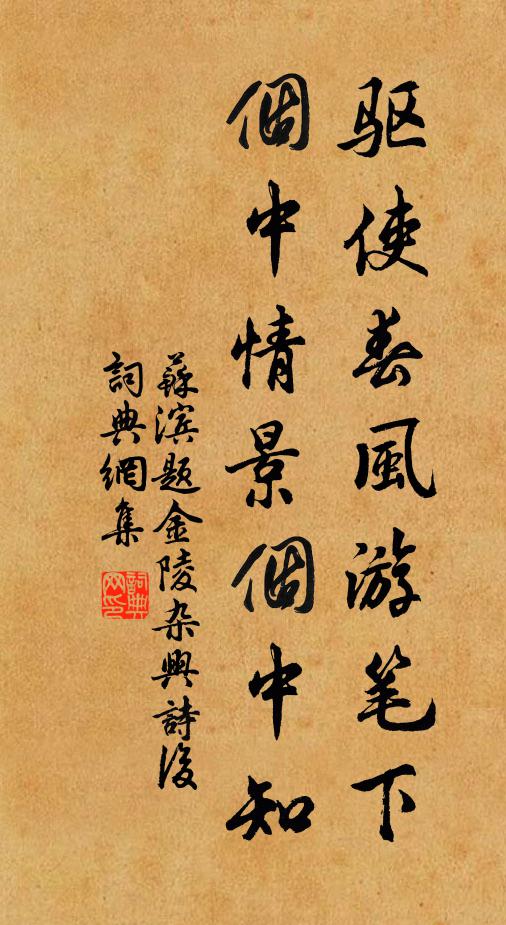 驱使春風游笔下
個中情景個中知
蘇滨题金陵杂興詩後
詞典網集
詞典網印